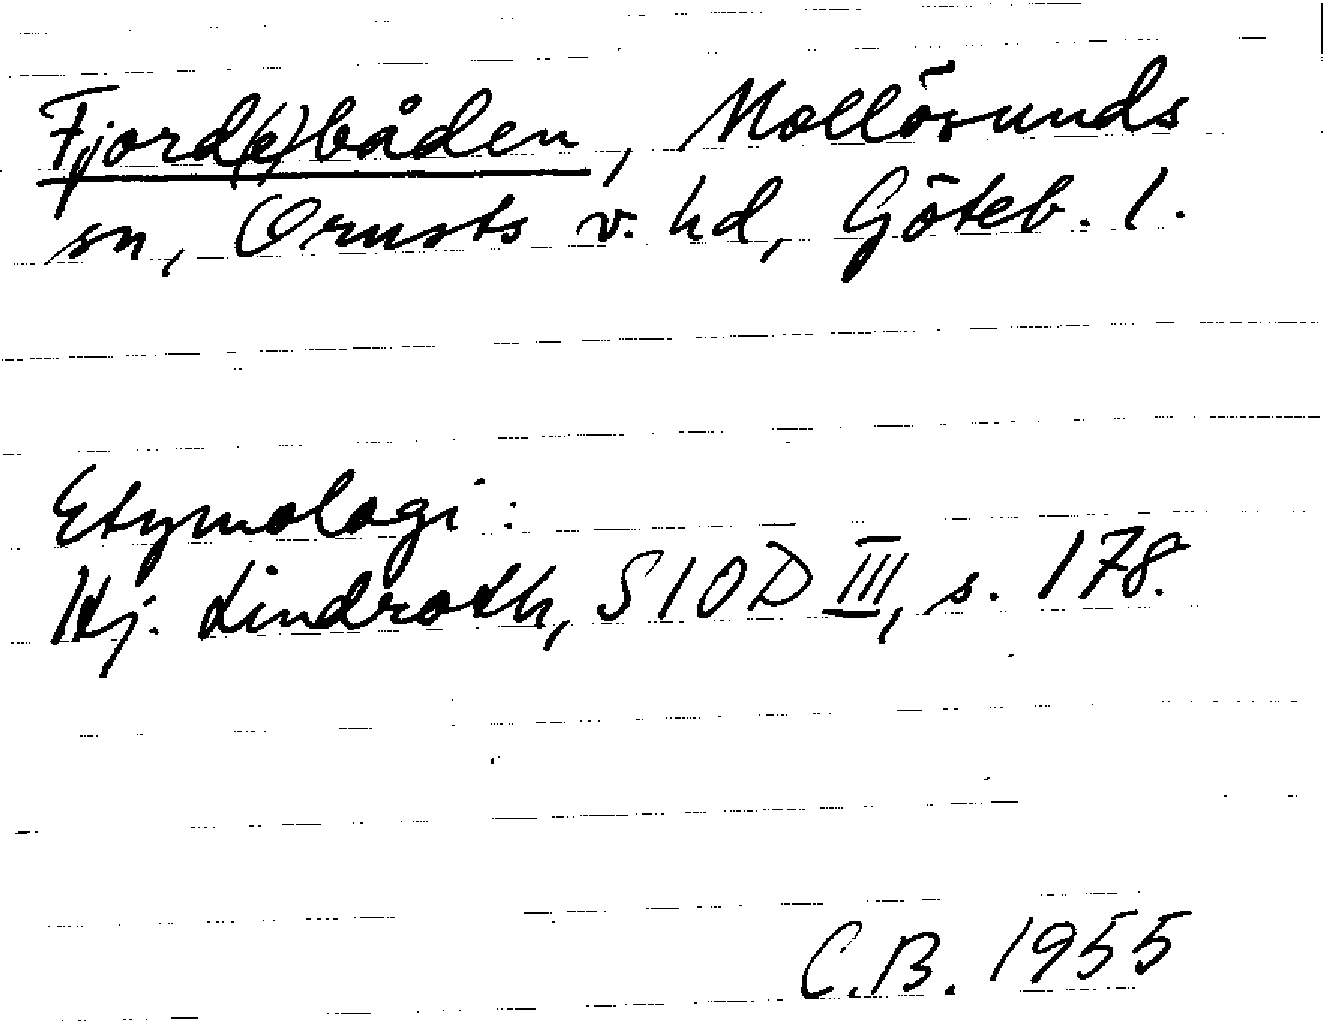 Fjord(e)båden, Mollösunds
sn, Orusts v. hd, Göteb. l.
Etymologi:
Hj. Lindroth, SIOD III, s. 178.
C.B. 1955